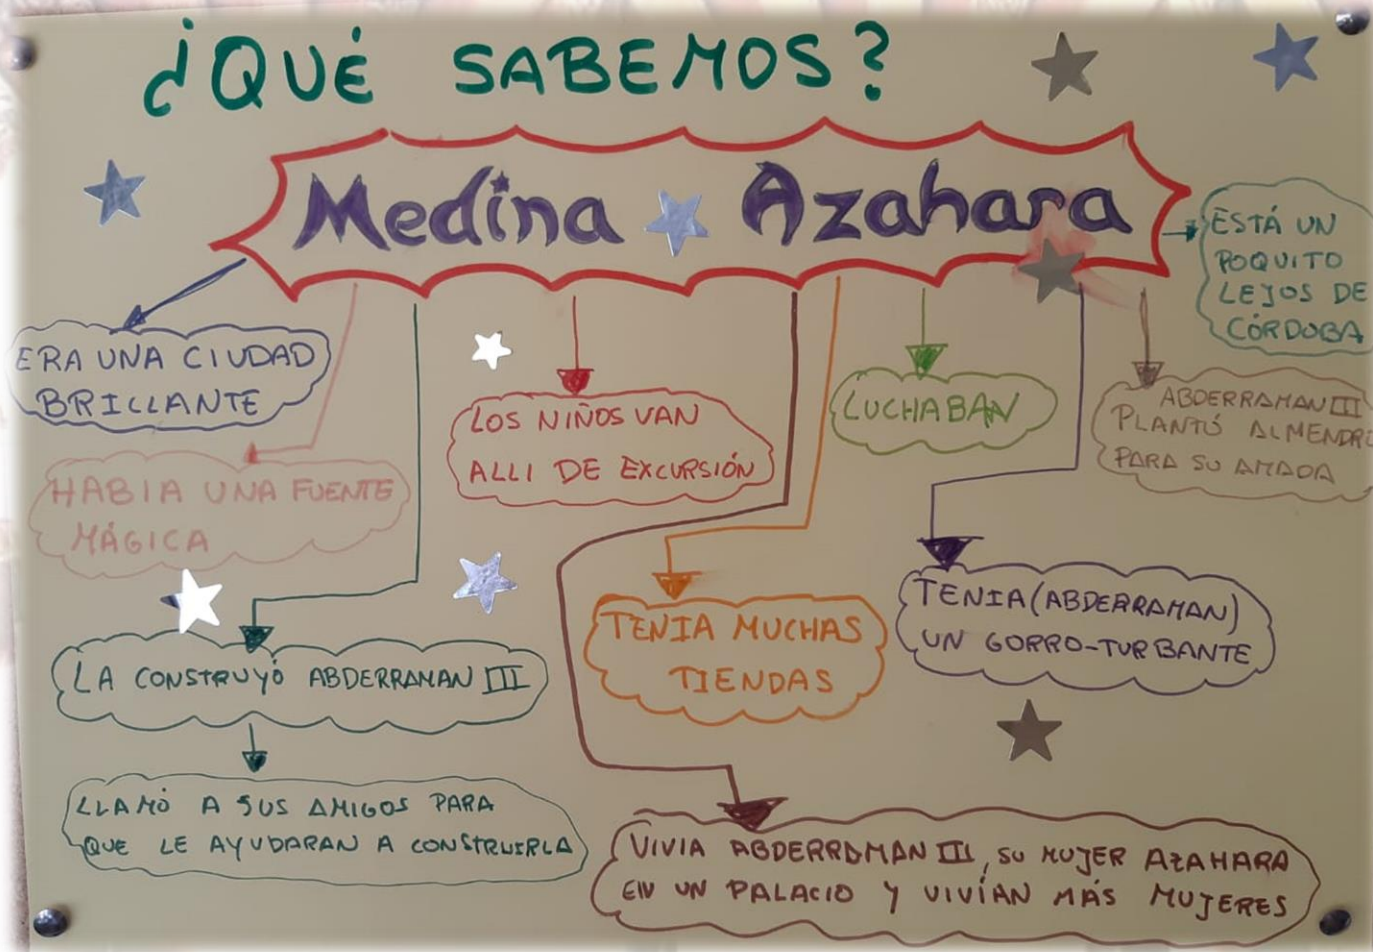 ¿QUÉ SABEMOS?
Medina Azahara
ESTÁ UN
POQUITO
LEJOS DE
CÓRDOBA
ERA UNA CIUDAD
BRILLANTE
HABIA UNA FUENTE
MÁGICA
LOS NIÑOS VAN
ALLI DE EXCURSIÓN
LUCHABAN
ABDERRAMAN III
PLANTÓ ALMENDR
PARA SU AMADA
LA CONSTRUYÓ ABDERRAMAN III
LLAMÓ A SUS AMIGOS PARA
QUE LE AYUDARAN A CONSTRUIRLA
TENIA MUCHAS
TIENDAS
TENIA (ABDERRAMAN)
UN GORRO-TURBANTE
VIVIA ABDERRAMAN III, SU MUJER AZAHARA
EN UN PALACIO Y VIVÍAN MÁS MUJERES